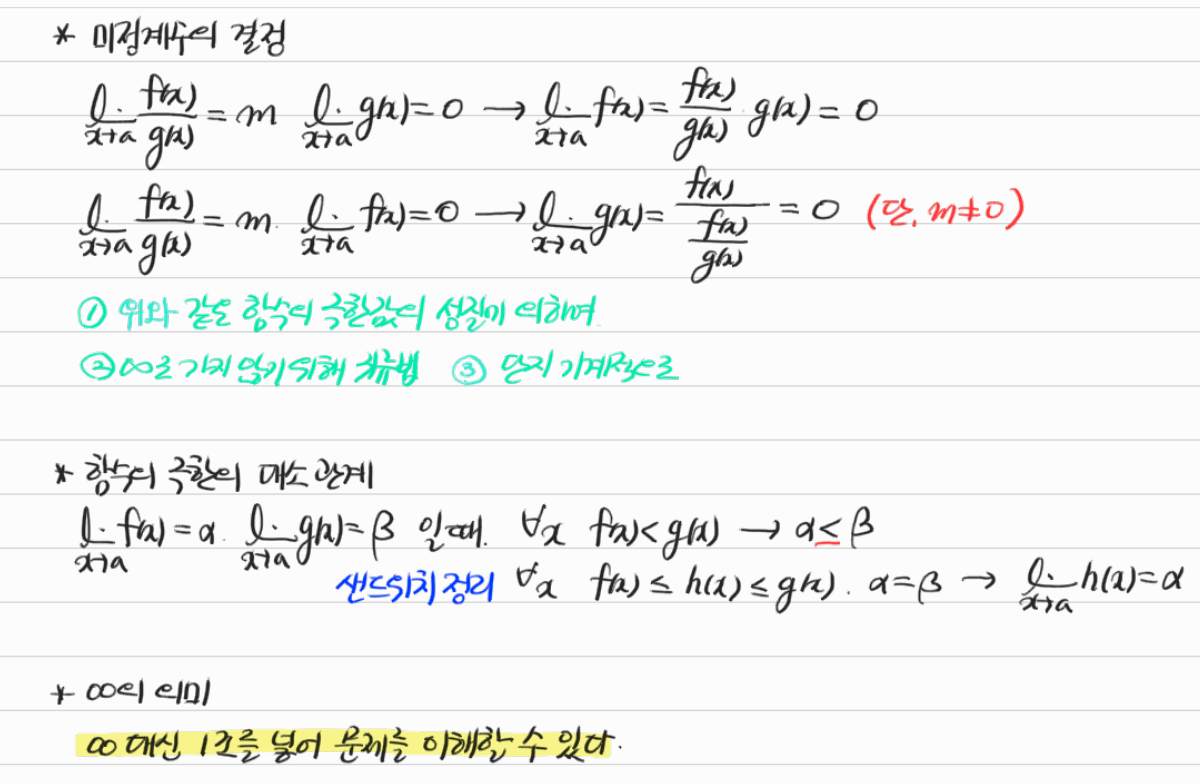 * 미정계수의 결정
l. x→a f(x)/g(x) = m l. x→a g(x) = 0 → l. x→a f(x) = f(x)/g(x) · g(x) = 0
l. x→a f(x)/g(x) = m. l. x→a f(x) = 0 → l. x→a g(x) = f(x)/(f(x)/g(x)) = 0 (단, m≠0)
① 위와 같은 함수의 극한값의 성질에 의하여
② ∞로 가지 않기 위해 차류법 ③ 단지 기계적으로
* 함수의 극한의 대소관계
l. x→a f(x) = α. l. x→a g(x) = β 일때. ∀x f(x) < g(x) → α ≤ β
샌드위치 정리 ∀x f(x) ≤ h(x) ≤ g(x). α = β → l. x→a h(x) = α
* ∞의 의미
∞ 대신 1조를 넣어 문제를 이해할 수 있다.